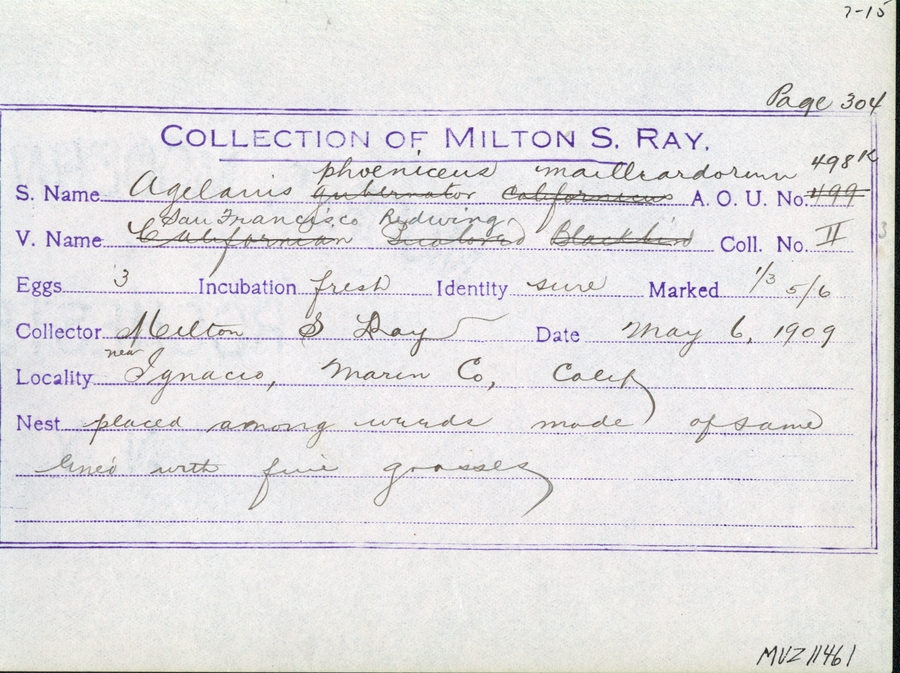 7-15
Page 304
COLLECTION OF MILTON S. RAY.
phoeniceus mailliardorum 498k
S. Name Agelaius gubernator californicus A. O. U. No. 499
San Francisco Redwing
V. Name Californian Bicolored Blackbird Coll. No. II
Eggs 3 Incubation fresh Identity sure Marked 1/3 5/6
Collector Milton S Ray Date May 6, 1909
near
Locality Ignacio, Marin Co, Calif
Nest placed among weeds made of same
lined with fine grasses
MVZ 11461